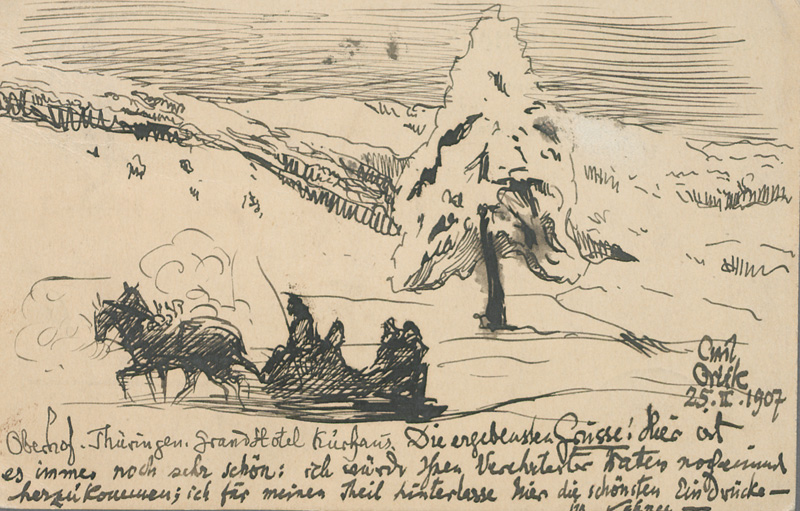 Emil
Orlik
25. II. 1907
Oberhof. Thüringen. Grand Hotel Kurhaus. Die ergebensten Grüsse! Hier ist
es immer noch sehr schön: ich würde Ihnen Verehrtester raten nocheinmal
herzukommen; ich für meinen Theil hinterlasse hier die schönsten Eindrücke —